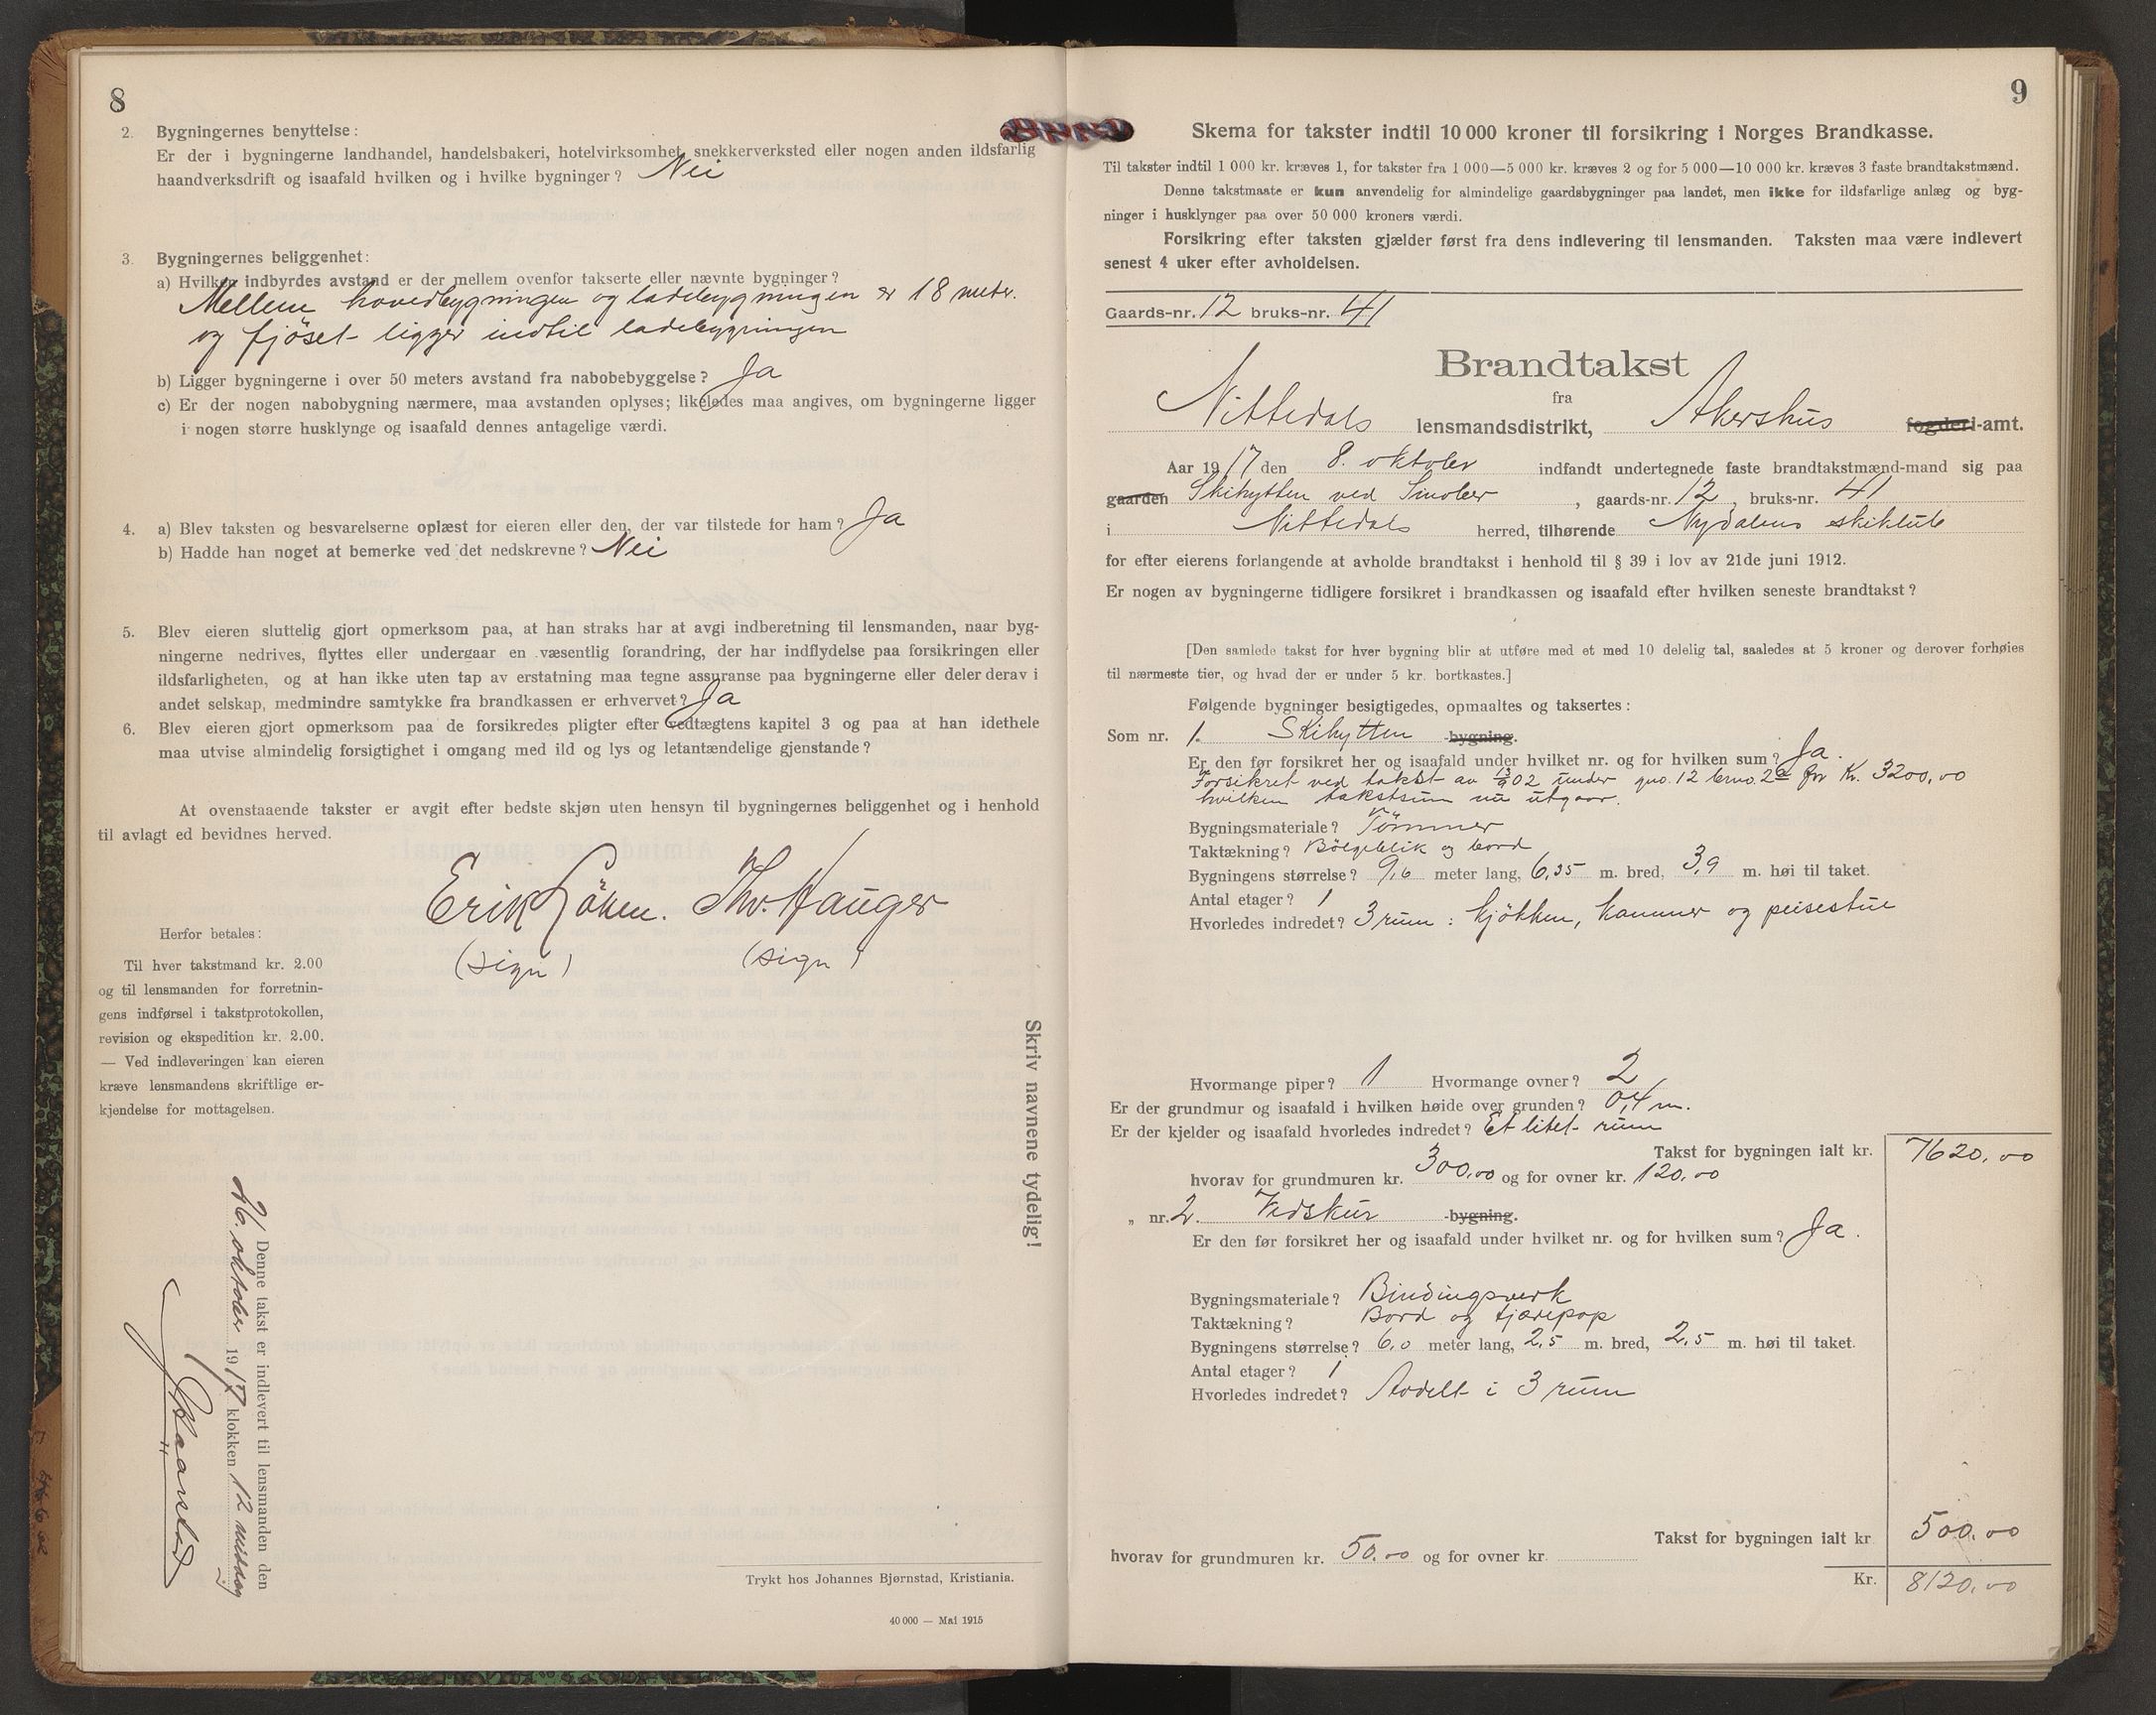 8
2. Bygningernes benyttelse:
Er der i bygningerne landhandel, handelsbakeri, hotelvirksomhet, snekkerverksted eller nogen anden ildsfarlig
haandverksdrift og isaafald hvilken og i hvilke bygninger? Nei
3. Bygningernes beliggenhet:
a) Hvilken indbyrdes avstand er der mellem ovenfor takserte eller nævnte bygninger?
Mellem hovedbygningen og ladebygningen er 18 meter.
og fjöset ligger indtil ladebygningen
b) Ligger bygningerne i over 50 meters avstand fra nabobebyggelse? Ja
c) Er der nogen nabobygning nærmere, maa avstanden oplyses; likeledes maa angives, om bygningerne ligger
i nogen større husklynge og isaafald dennes antagelige værdi.
4. a) Blev taksten og besvarelserne oplæst for eieren eller den, der var tilstede for ham? Ja
b) Hadde han noget at bemerke ved det nedskrevne? Nei
5. Blev eieren sluttelig gjort opmerksom paa, at han straks har at avgi indberetning til lensmanden, naar byg-
ningerne nedrives, flyttes eller undergaar en væsentlig forandring, der har indflydelse paa forsikringen eller
ildsfarligheten, og at han ikke uten tap av erstatning maa tegne assuranse paa bygningerne eller deler derav i
andet selskap, medmindre samtykke fra brandkassen er erhvervet? Ja
6. Blev eieren gjort opmerksom paa de forsikredes pligter efter vedtægtens kapitel 3 og paa at han idethele
maa utvise almindelig forsigtighet i omgang med ild og lys og letantændelige gjenstande?
At ovenstaaende takster er avgit efter bedste skjøn uten hensyn til bygningernes beliggenhet og i henhold
til avlagt ed bevidnes herved.
Erik Löken. Thv. Hauger
(sign) (sign)
Herfor betales:
Til hver takstmand kr. 2.00
og til lensmanden for forretnin-
gens indførsel i takstprotokollen,
revision og ekspedition kr. 2.00.
— Ved indleveringen kan eieren
kræve lensmandens skriftlige er-
kjendelse for mottagelsen.
Skriv navnene tydelig!
Denne takst er indlevert til lensmanden den
26. oktober 1917 klokken 12 middag
Trykt hos Johannes Bjørnstad, Kristiania.
40 000 — Mai 1915
9
Skema for takster indtil 10 000 kroner til forsikring i Norges Brandkasse.
Til takster indtil 1 000 kr. kræves 1, for takster fra 1 000—5 000 kr. kræves 2 og for 5 000—10 000 kr. kræves 3 faste brandtakstmænd.
Denne takstmaate er kun anvendelig for almindelige gaardsbygninger paa landet, men ikke for ildsfarlige anlæg og byg-
ninger i husklynger paa over 50 000 kroners værdi.
Forsikring efter taksten gjælder først fra dens indlevering til lensmanden. Taksten maa være indlevert
senest 4 uker efter avholdelsen.
Gaards-nr. 12 bruks-nr. 41
Brandtakst
fra
Nittedals lensmandsdistrikt, Akershus fogderi-amt.
Aar 1917 den 8. oktober indfandt undertegnede faste brandtakstmænd-mand sig paa
gaarden Skihytten ved Sinober, gaards-nr. 12, bruks-nr. 41
i Nittedals herred, tilhørende Nydalens skiklub
for efter eierens forlangende at avholde brandtakst i henhold til § 39 i lov av 21de juni 1912.
Er nogen av bygningerne tidligere forsikret i brandkassen og isaafald efter hvilken seneste brandtakst?
[Den samlede takst for hver bygning blir at utføre med et med 10 delelig tal, saaledes at 5 kroner og derover forhøies
til nærmeste tier, og hvad der er under 5 kr. bortkastes.]
Følgende bygninger besigtigedes, opmaaltes og taksertes:
Som nr. 1. Skihytten -bygning.
Er den før forsikret her og isaafald under hvilket nr. og for hvilken sum? Ja.
Forsikret ved takst av 13/9 02 under gno. 12 brno. 2 for Kr. 3200,00
hvilken takstsum nu utgaar.
Bygningsmateriale? Tömmer
Taktækning? Bölgeblik og bord
Bygningens størrelse? 9,6 meter lang, 6,35 m. bred, 3,9 m. høi til taket.
Antal etager? 1
Hvorledes indredet? 3 rum: kjökken, kammer og peisestue
Hvormange piper? 1 Hvormange ovner? 2
Er der grundmur og isaafald i hvilken høide over grunden? 0,4 m.
Er der kjelder og isaafald hvorledes indredet? Et litet rum
Takst for bygningen ialt kr. 7620,00
hvorav for grundmuren kr. 300,00 og for ovner kr. 120,00
„ nr. 2. Vedskur -bygning.
Er den før forsikret her og isaafald under hvilket nr. og for hvilken sum? Ja.
Bygningsmateriale? Bindingsverk
Taktækning? Bord og tjærepap
Bygningens størrelse? 6,0 meter lang, 2,5 m. bred, 2,5 m. høi til taket.
Antal etager? 1
Hvorledes indredet? Avdelt i 3 rum
Takst for bygningen ialt kr 500,00
hvorav for grundmuren kr. 50,00 og for ovner kr.
Kr. 8120,00